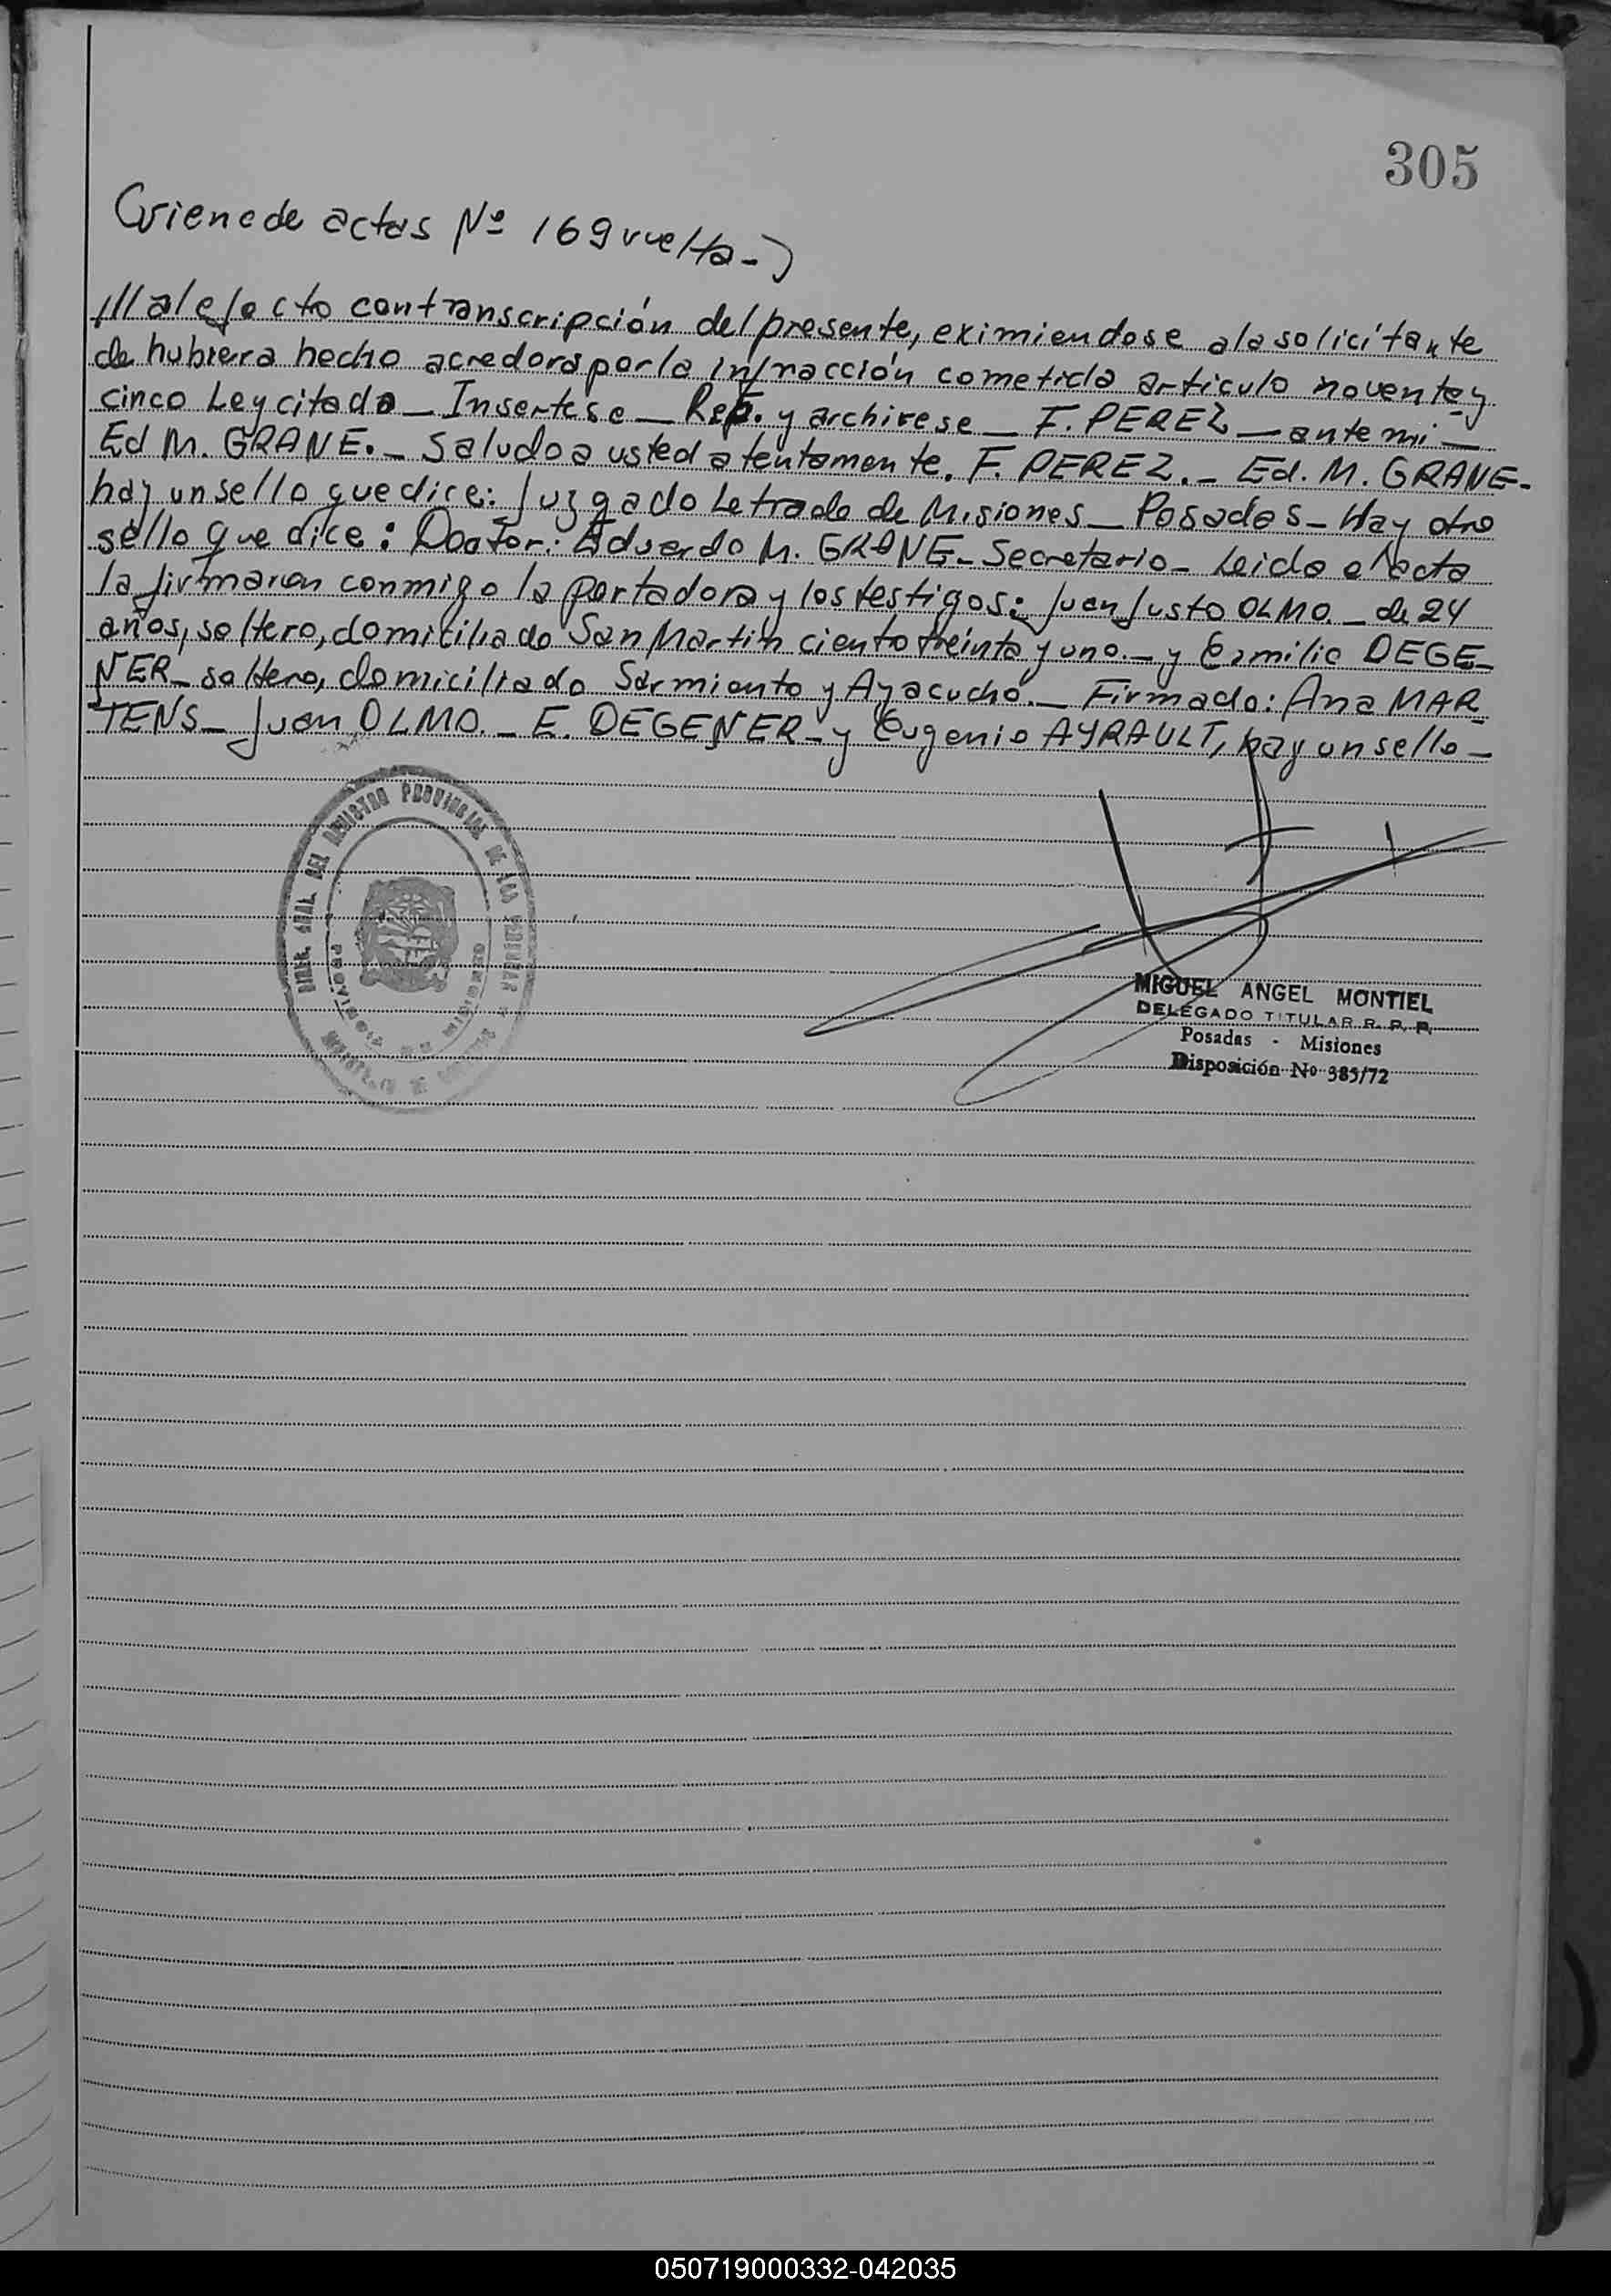 305
(viene de actas Nº 169 vuelta-)
/// al efecto con transcripción del presente, eximiendose a la solicitante
de hubiera hecho acredora por la infracción cometida articulo noventa y
cinco Ley citada _ Insertese _ Rep. y archivese _ F. PEREZ _ ante mi _
Ed M. GRANE. _ Saludo a usted atentamente. F. PEREZ. _ Ed. M. GRANE-
hay un sello que dice: Juzgado Letrado de Misiones _ Posadas _ Hay otro
sello que dice: Doctor: Eduardo M. GRANE _ Secretario _ Leida el acta
la firmaron conmigo la portadora y los testigos: Juan Justo OLMO. _ de 24
años, soltero, domiciliado San Martin ciento treinta y uno. _ y Emilio DEGE-
NER _ soltero, domiciliado Sarmiento y Ayacucho. _ Firmado: Ana MAR-
TENS _ Juan OLMO. _ E. DEGENER _ y Eugenio AYRAULT, hay un sello _
DIREC. GRAL. DEL REGISTRO PROVINCIAL DE LAS PERSONAS
PROVINCIA DE MISIONES
MIGUEL ANGEL MONTIEL
DELEGADO TITULAR R. P. P.
Posadas - Misiones
Disposición Nº 385/72
050719000332-042035